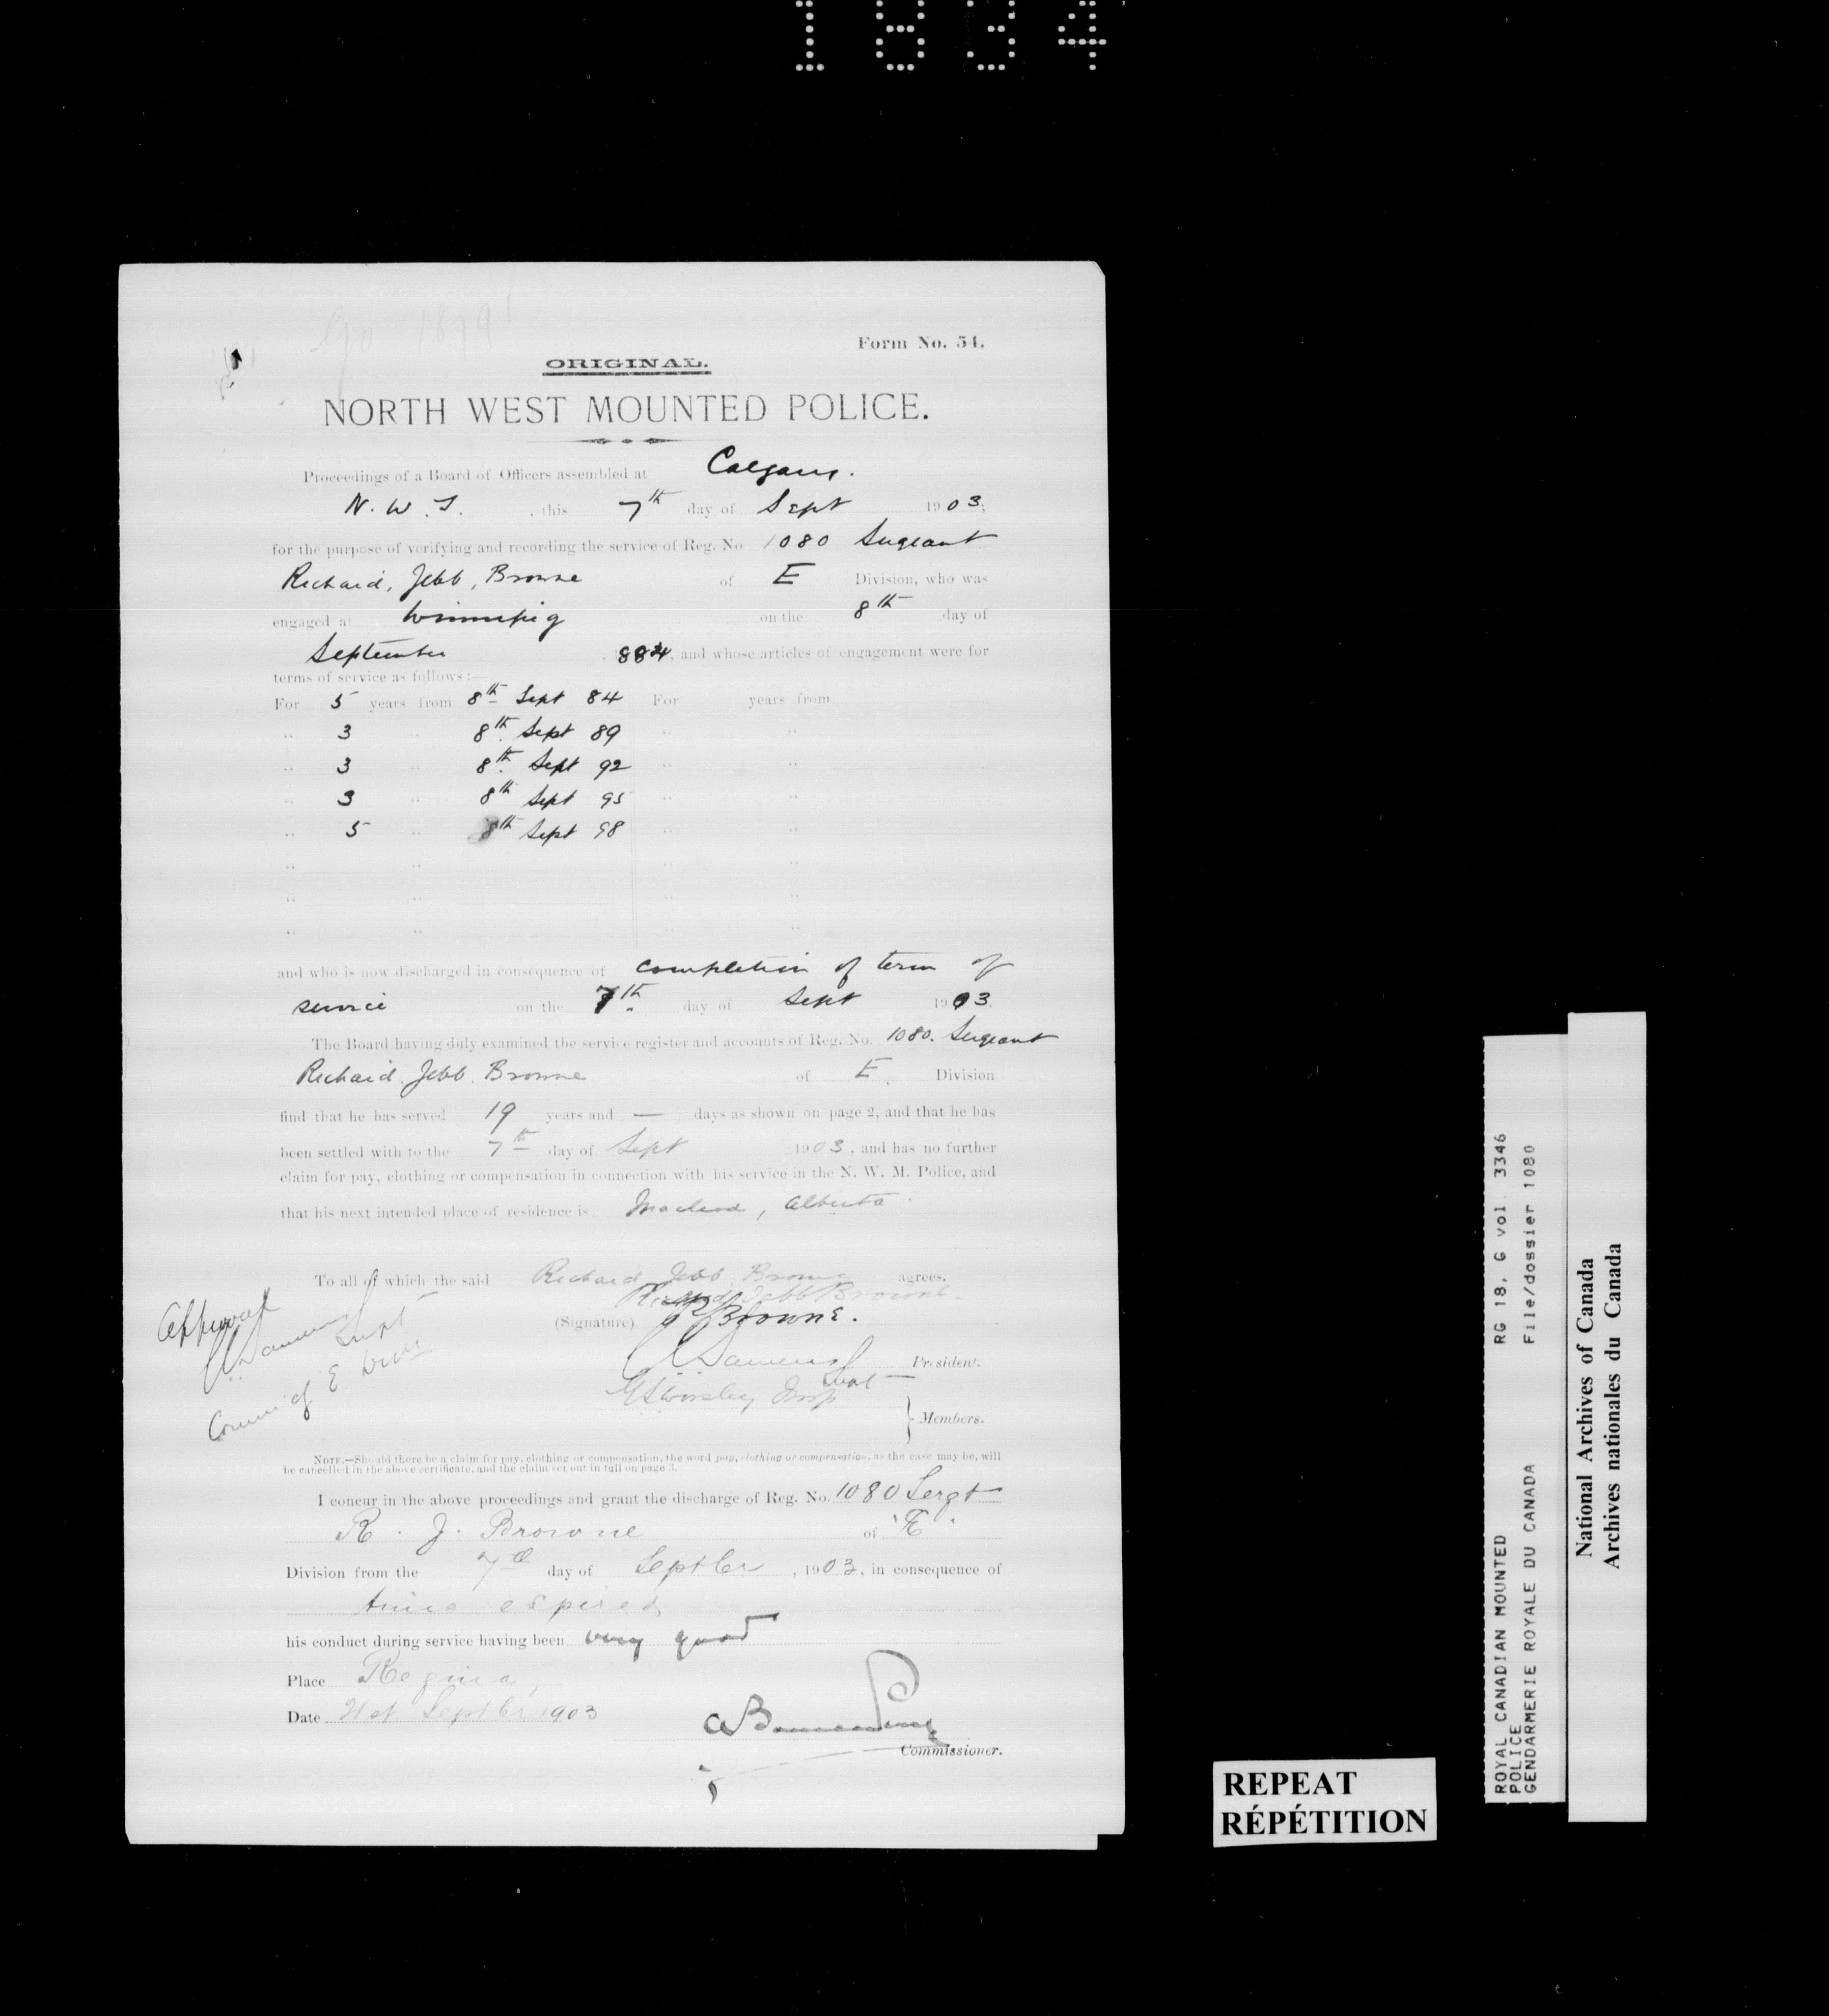 1834
Go 1879
Form No. 54.
ORIGINAL.
NORTH WEST MOUNTED POLICE.
Proceedings of a Board of Officers assembled at Calgary.
N. W. T. , this 7th day of Sept 1903;
for the purpose of verifying and recording the service of Reg. No 1080 Sergeant
Richard, Jebb, Browne of E Division, who was
engaged at Winnipeg on the 8th day of
September , 1884, and whose articles of engagement were for
terms of service as follows:—
For 5 years from 8th Sept 84 For years from
" 3 " 8th Sept 89 " "
" 3 " 8th Sept 92 " "
" 3 " 8th Sept 95 " "
" 5 " 8th Sept 98 " "
" " " "
" " " "
" " " "
and who is now discharged in consequence of completion of term of
service on the 7th day of Sept 1903.
The Board having duly examined the service register and accounts of Reg. No. 1080. Sergeant
Richard. Jebb. Browne of E. Division
find that he has served 19 years and — days as shown on page 2, and that he has
been settled with to the 7th day of Sept 1903, and has no further
claim for pay, clothing or compensation in connection with his service in the N. W. M. Police, and
that his next intended place of residence is Macleod, Alberta.
To all of which the said Richard Jebb Browne agrees.
Richard Jebb Browne.
(Signature) RJBrowne.
Approved
Supt
Comm'g E Div'n
President.
Supt
GSWorsley Insp
Members.
NOTE.—Should there be a claim for pay, clothing or compensation, the word pay, clothing or compensation, as the case may be, will
be cancelled in the above certificate, and the claim set out in full on page 3.
I concur in the above proceedings and grant the discharge of Reg. No. 1080 Sergt
R. J. Browne of 'E'.
Division from the 7th day of Septbr , 1903, in consequence of
time expired,
his conduct during service having been very good
Place Regina,
Date 21st Septbr 1903
A Bowen Perry
Commissioner.
REPEAT
RÉPÉTITION
ROYAL CANADIAN MOUNTED RG 18, G vol. 3346
POLICE
GENDARMERIE ROYALE DU CANADA File/dossier 1080
National Archives of Canada
Archives nationales du Canada